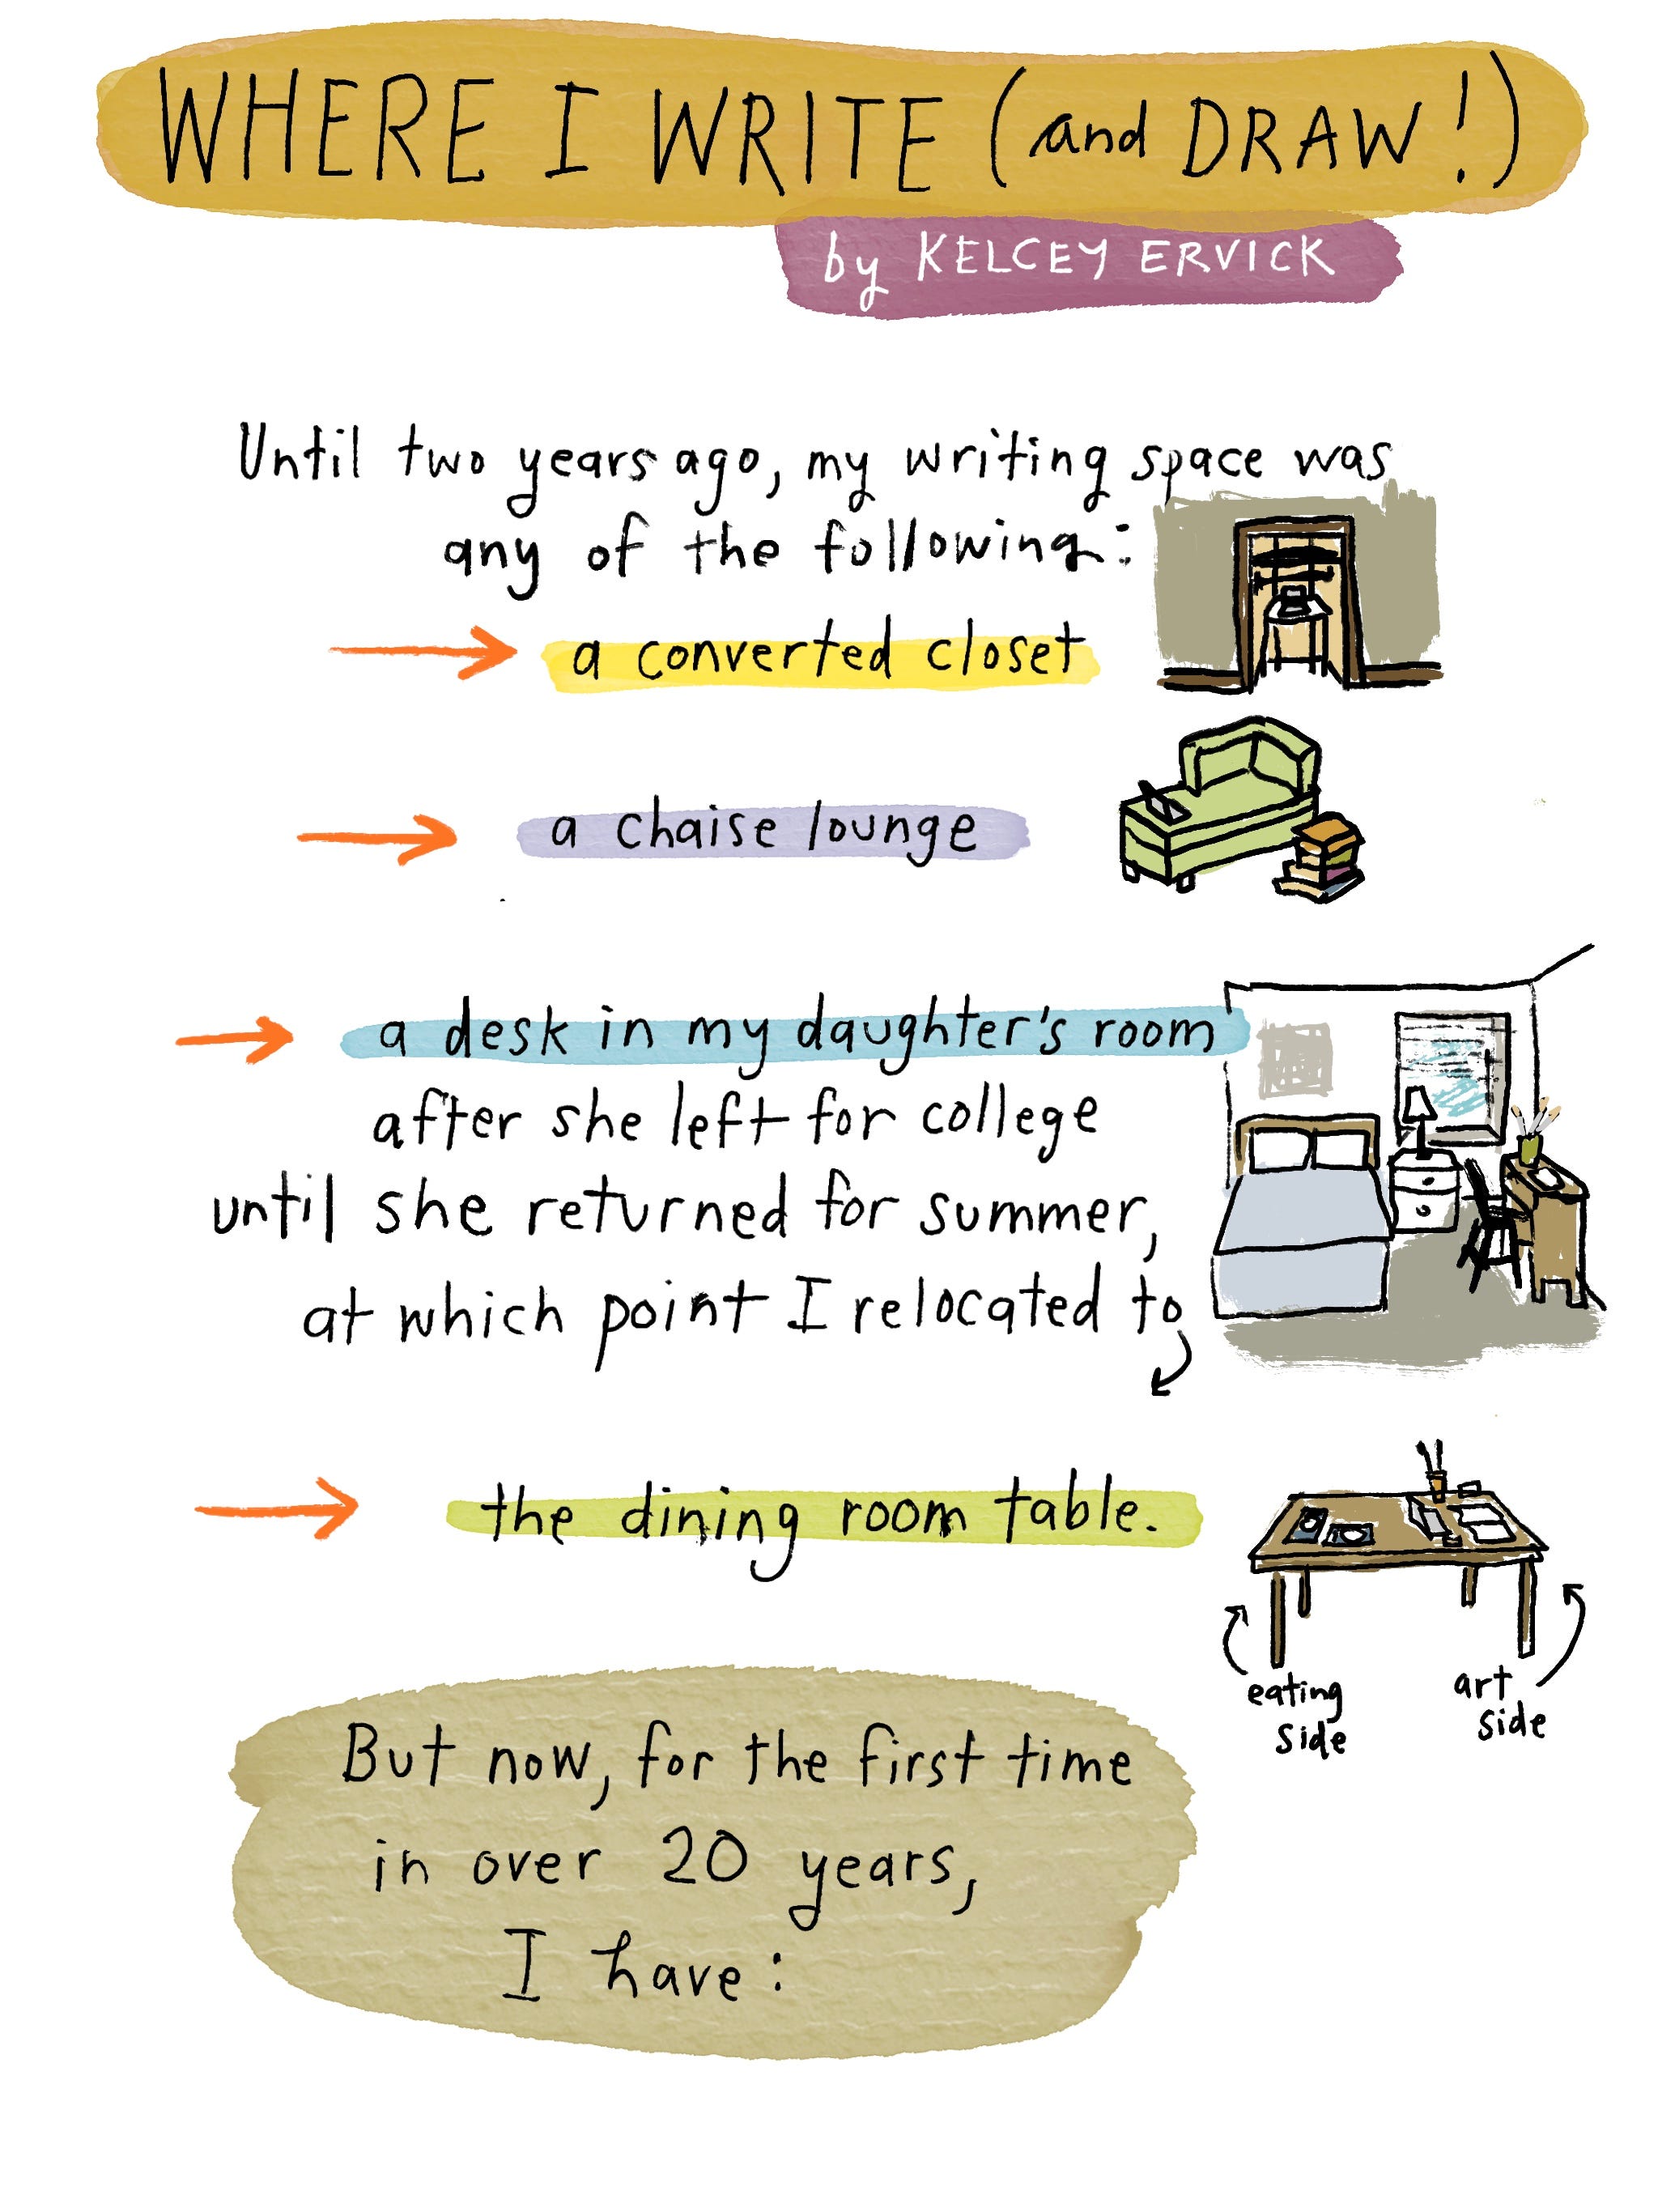 WHERE I WRITE (and DRAW!)
by KELCEY ERVICK
Until two years ago, my writing space was
any of the following:
a converted closet
a chaise lounge
a desk in my daughter's room
after she left for college
until she returned for summer,
at which point I relocated to
the dining room table.
eating
side
art
side
But now, for the first time
in over 20 years,
I have: